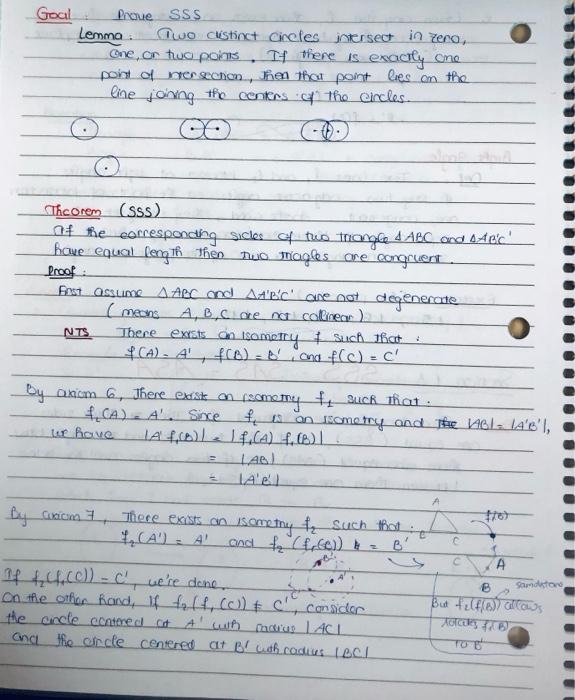 Goal : Prove SSS.
Lemma : Two distinct circles intersect in zero,
one, or two points. If there is exactly one
point of intersection, then that point lies on the
line joining the centers of the circles.
Theorem (SSS)
If the corresponding sides of two triangle Δ ABC and Δ A'B'C'
have equal length then two triagles are congruent.
Proof :
First assume Δ ABC and Δ A'B'C' are not degenerate
( means A, B, C are not collinear )
NTS There exists an Isometry f such that :
f(A) = A' , f(B) = B' , and f(C) = C'
By axiom 6, There exists an isometry f₁ such that.
f₁(A) = A' Since f₁ is an isometry and the |AB| = |A'B'|,
we have |A' f₁(B)| = | f₁(A) f₁(B)|
= |AB|
= |A'B'|
By axiom 7, There exists an isometry f₂ such that :
f₂(A') = A' and f₂ (f₁(B)) = B'
A
B C
f(B)
C A
B
B'
A'
C'
If f₂(f₁(C)) = C', we're done.
On the other hand, if f₂(f₁(C)) ≠ C', consider
the circle centered at A' with radius |AC|
and the circle centered at B' with radius |BC|
But f₂(f(B)) allows
rotates f₁(B)
TO B'